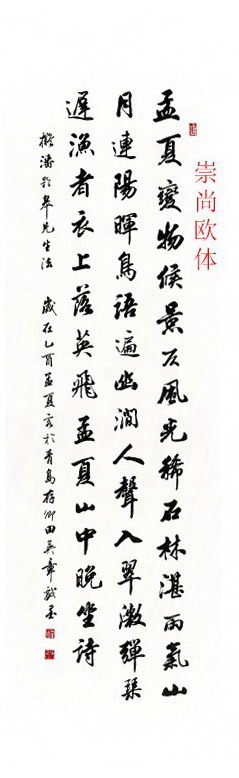 孟夏變物候景云風光稀石林湛雨氣山
月連陽暉鳥語遍幽澗人聲入翠澂彈琴
遲漁者衣上落英飛孟夏山中晚坐詩
擬潘於皋先生法 歲在乙酉孟夏客於青島存仰田吳章
崇尚欧体